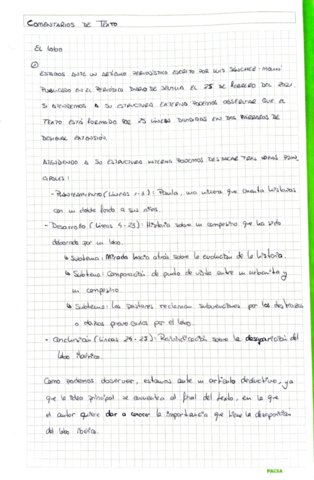 COMENTARIOS DE TEXTO
EL LOBO
ESTAMOS ANTE UN ARTÍCULO PERIODÍSTICO ESCRITO POR LUIS SÁNCHEZ-MOLINÍ
PUBLICADO EN EL PERIÓDICO DIARIO DE SEVILLA EL 25 DE FEBRERO DEL 2021.
SI ATENDEMOS A SU ESTRUCTURA EXTERNA PODEMOS OBSERVAR QUE EL
TEXTO ESTÁ FORMADO POR 25 LÍNEAS DIVIDIDAS EN DOS PÁRRAFOS DE
DESIGUAL EXTENSIÓN.
ATENDIENDO A SU ESTRUCTURA INTERNA PODEMOS DESTACAR TRES IDEAS PRIN
CIPALES:
- Planteamiento (Líneas 1-3): Paula, una que cuenta historias
con un doble fondo a sus
- Desarrollo (Líneas 4-23): Historia sobre un campesino que ha sido
devorado por un lobo.
↳ Subtema: Mirada hacia atrás sobre la evolución de la historia.
↳ Subtema: Comparación de punto de vista entre un urbanita y
un campestre.
↳ Subtema: Los pastores reclaman subvenciones por los destrozos
o daños provocados por el lobo.
- Conclusión (Líneas 24-25): sobre la desaparición del
lobo ibérico.
Como podemos observar, estamos ante un artículo deductivo, ya
que la idea principal se encuentra al final del texto, en la que
el autor quiere dar a conocer la importancia que tiene la desaparición
del lobo ibérico.
PACSA